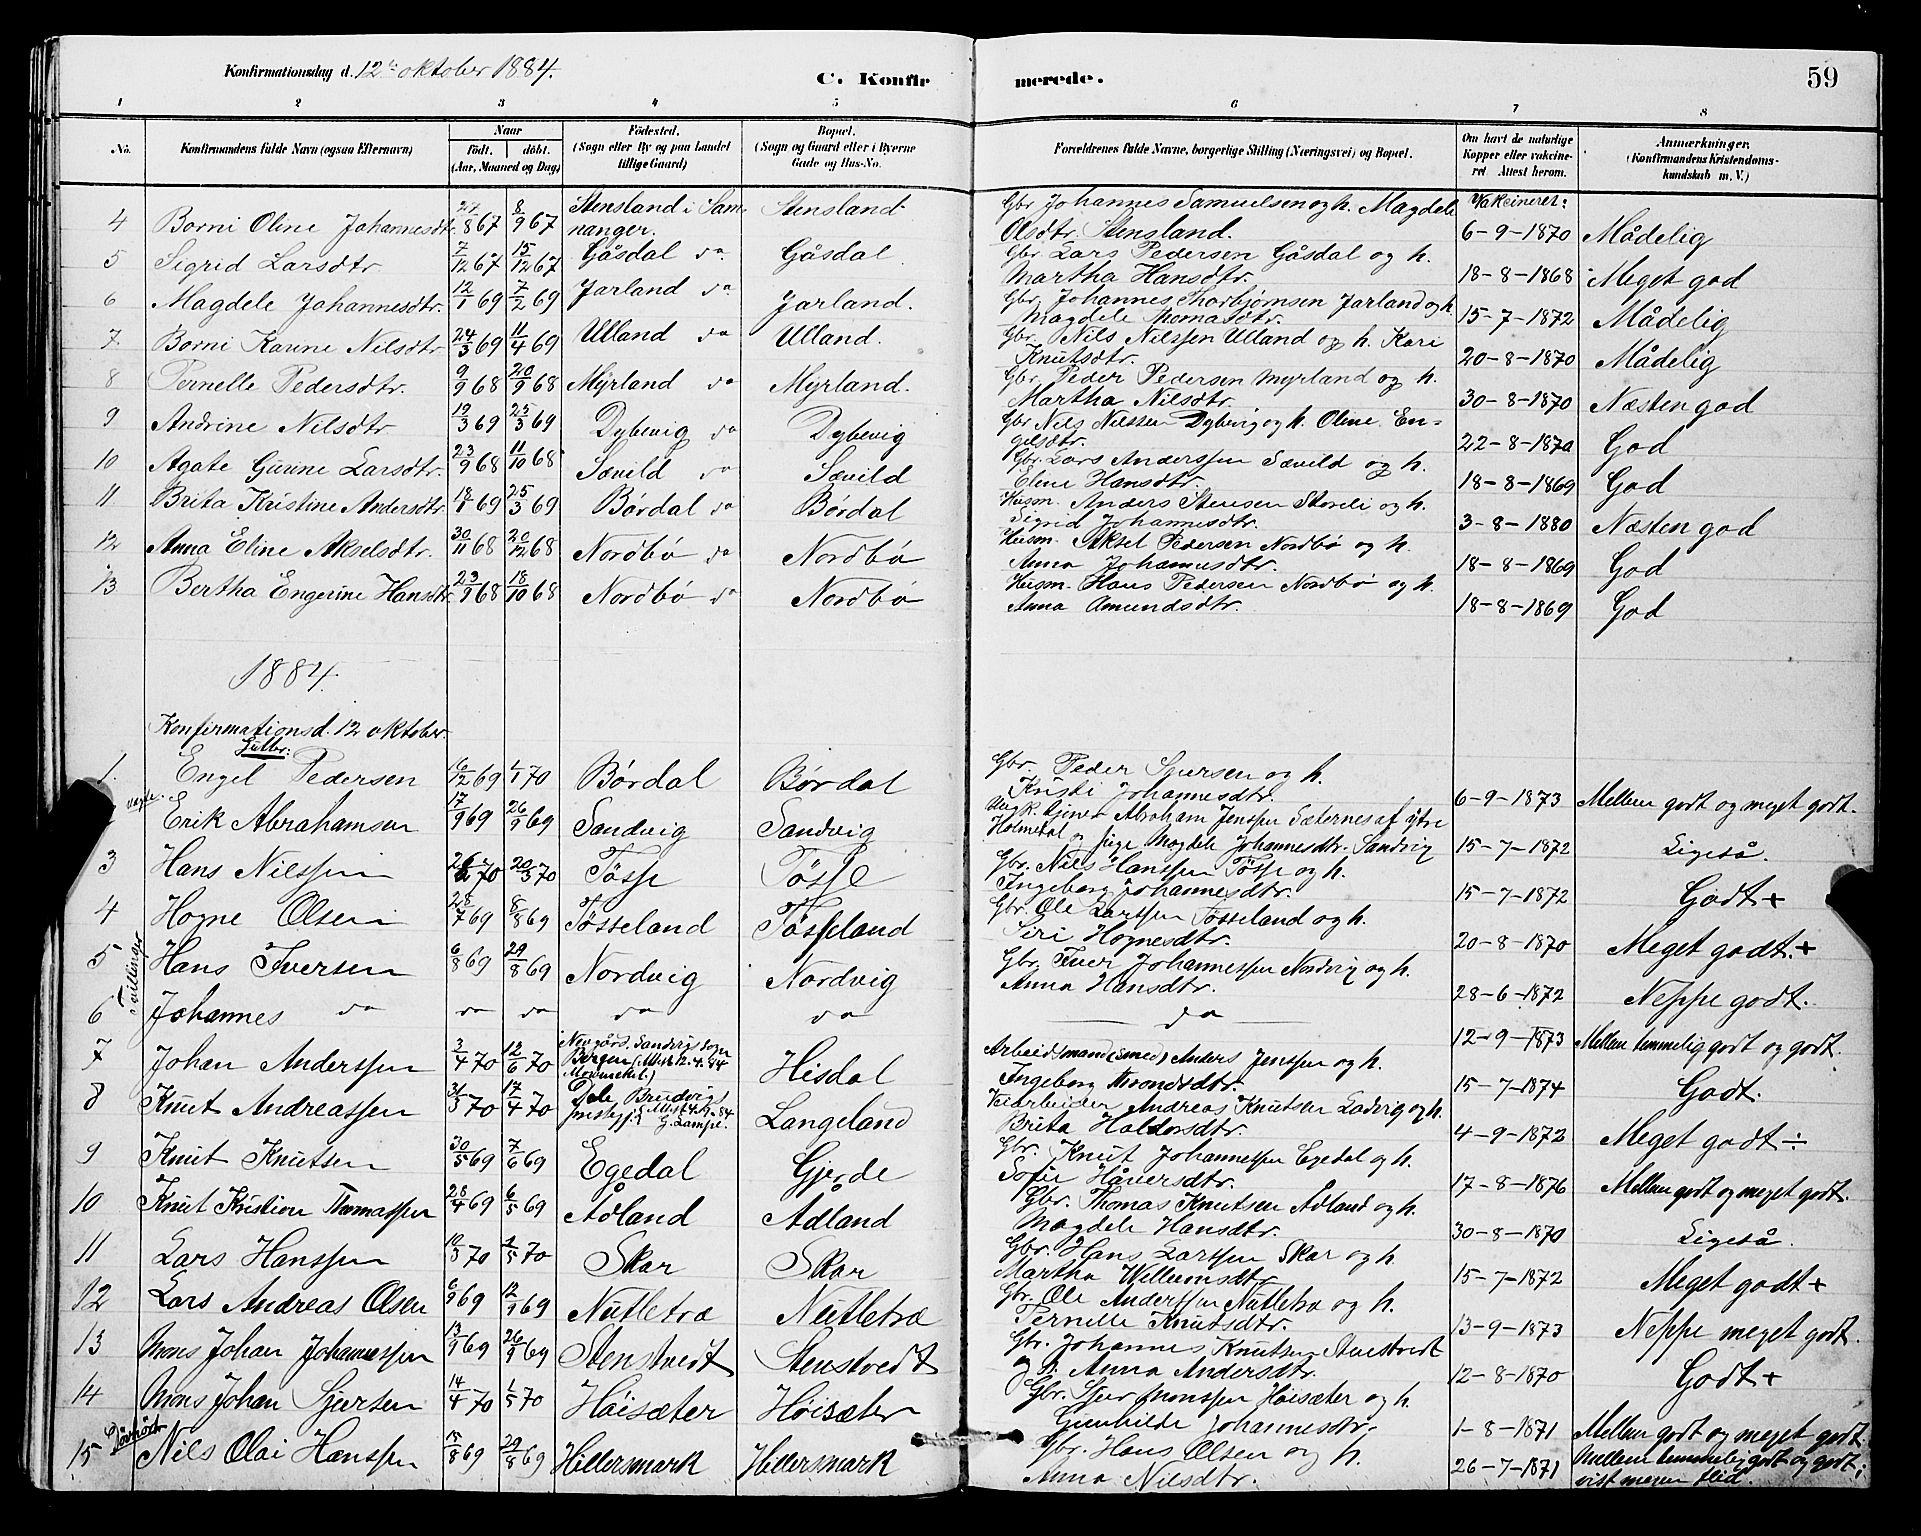 Konfirmationsdag d. 12te oktober 1884.
C. Konfirmerede.
59
1 2 3 4 5 6 7 8
No. Konfirmandens fulde Navn (ogsaa Efternavn) Naar födt. döbt. (Aar, Maaned og Dag) Födested. (Sogn eller By og paa Landet tillige Gaard) Bopæl. (Sogn og Gaard eller i Byerne Gade og Hus-No. Forældrenes fulde Navne, borgerlige Stilling (Næringsvei) og Bopæl. Om havt de naturlige Kopper eller vakcineret Attest herom. Anmærkninger. (Konfirmandens Kristendomskundskab m. V.)
Vakcineret:
4 Borni Oline Johannesdtr. 24/8 67 8/9 67 Stensland i Samnanger. Stensland Gbr Johannes Samuelsen og h. Magdele Olsdtr. Stensland. 6-9-1870 Mådelig
5 Sigrid Larsdtr 7/12 67 15/12 67 Gåsdal do Gåsdal Gbr Lars Pedersen Gåsdal og h. Martha Hansdtr. 18-8-1868 Meget god
6 Magdele Johannesdtr. 12/1 69 7/2 69 Jarland do Jarland. Gbr Johannes Thorbjørnsen Jarland og h. Magdele Thomasdtr. 15-7-1872 Mådelig
7 Borni Karine Nilsdtr 24/3 69 11/4 69 Ulland do Ulland. Gbr. Nils Nilssen Ulland og h. Kari Knutsdtr. 20-8-1870 Mådelig
8 Pernelle Pedersdtr. 9/9 68 20/9 68 Myrland do Myrland. Gbr Peder Pedersen Myrland og h. Martha Nilsdtr. 30-8-1870 Næsten god
9 Andrine Nilsdtr 12/3 69 25/3 69 Dybevig do Dybevig Gbr Nils Nilssen Dybevig og h. Oline Engelsdtr. 22-8-1870 God
10 Agate Gurine Larsdtr. 23/9 68 11/10 68 Sævild do Sævild Gbr. Lars Anderssen Sævild og h. Eline Hansdtr. 18-8-1869 God
11 Brita Kristine Andersdtr 18/1 69 25/3 69 Børdal do Børdal Husm. Anders Stensen Storeli og h. Sigrid Johannesdtr. 3-8-1880 Næsten god
12 Anna Eline Akselsdtr. 30/11 68 20/12 68 Nordbø do Nordbø Husm. Aksel Pedersen Nordbø og h. Anna Johannesdtr. 18-8-1869 God
13 Bertha Engerine Hansdtr. 23/9 68 18/10 68 Nordbø do Nordbø Husm. Hans Pedersen Nordbø og h. Anna Amundsdtr. 18-8-1869 God
1884.
Konfirmationsd. 12 oktober.
Gutter:
1. Engel Pedersen 16/12 69 1/1 70 Børdal Børdal Gbr. Peder Sjursen og h. Kristi Johannesdtr. 6-9-1873 Mellem godt og meget godt.
Erik Abrahamsen 17/9 69 26/9 69 Sandvig Sandvig Abraham Jenssen Sæternes af ytre Holmedal og pige Magdele Johannesdtr. Sandvig 15-7-1872 Ligeså.
3 Hans Nilssen 26/2 70 20/3 70 Tøsse Tøsse Gbr. Nils Hanssen Tøsse og h. Ingeborg Johannesdtr. 15-7-1872 Godt +
4 Hogne Olsen 28/7 69 8/8 69 Tøsseland Tøsseland Gbr. Ole Larssen Tøsseland og h. Siri Hognesdtr. 20-8-1870 Meget godt. +
Tvillinger
5 Hans Iversen 6/8 69 29/8 69 Nordvig Nordvig Gbr. Iver Johannessen Nordvig og h. Anna Hansdtr. 28-6-1872 Neppe godt.
6 Johannes do do do do do do 12-9-1873 Mellem temmelig godt og godt.
7 Johan Anderssen 3/4 70 12/6 70 Nevgård. Sandvigs sogn Bergen (Attest 12.4.84 Hisdal Arbeidsmand (Smed) Anders Jenssen og h. Ingeborg Trondsdtr. 15-7-1874 Godt.
8 Knut Andreassen 31/3 70 17/4 70 Dale Brudvigs prstegj. Attest 4.9.84 G. Lampe. Langeland Veiarbeider Andreas Knutsen Ladvig og h. Brita Haldorsdtr. 4-9-1872 Meget godt ÷
9 Knut Knutsen 30/5 69 7/6 69 Egedal Gjerde Gbr. Knut Johannessen Egedal og h. Sofie Håversdtr. 17-8-1876 Mellem godt og meget godt.
10 Knut Kristian Thomassen 28/4 69 6/5 69 Ådland Ådland Gbr. Thomas Knutsen Ådland og h. Magdele Hansdtr. 30-8-1870 Ligeså.
11 Lars Hanssen 10/3 70 1/5 70 Skar Skar Gbr. Hans Larssen Skar og h Martha Willumsdtr 15-7-1872 Meget godt +
12 Lars Andreas Olsen 6/9 69 12/9 69 Nutletræ Nutletræ Gbr. Ole Anderssen Nutletræ og h. Pernelle Knutsdtr. 13-9-1873 Neppe meget godt.
13 Mons Johan Johannessen 13/9 69 26/9 69 Stenstvedt Stenstvedt Gbr. Johannes Knutsen Stenstvedt og h. Anna Andersdtr. 12-8-1870 Godt +
14 Mons Johan Sjursen 14/4 70 1/5 70 Høisæter Høisæter Gbr. Sjur Monssen Høisæter og h. Gunhilde Johannesdtr. 1-8-1871 Mellem godt og meget godt.
Døvhørt
15 Nils Olai Hanssen 15/8 69 29/8 69 Hillersmark Hillersmark Gbr. Hans Olsen og h. Anna Nilsdtr. 26-7-1871 Mellem temmelig godt og godt; vist megen flid.